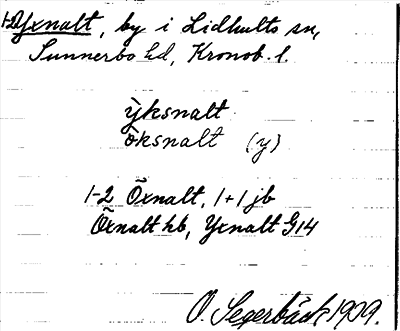 1-2 Yxnalt, by i Lidhults sn,
Sunnerbo hd, Kronob. l.
ỳksnalt
òksnalt (y)
1-2 Öxnalt, 1+1 jb
Öxnalt hb, Yxnalt G14
O. Segerbäck 1909.